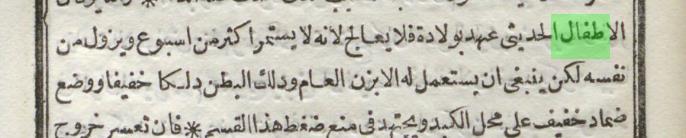 الاطفال الحديثى عهد بولادة فلا يعالج لانه لا يستمر اكثر من اسبوع ويزول من
نفسه لكن ينبغى ان يستعمل له الابزن العام ودلك البطن دلكا خفيفا ووضع
ضماد خفيف على محل الكبد ويجتهد فى منع ضغط هذا القسم * فان تعسر خروج